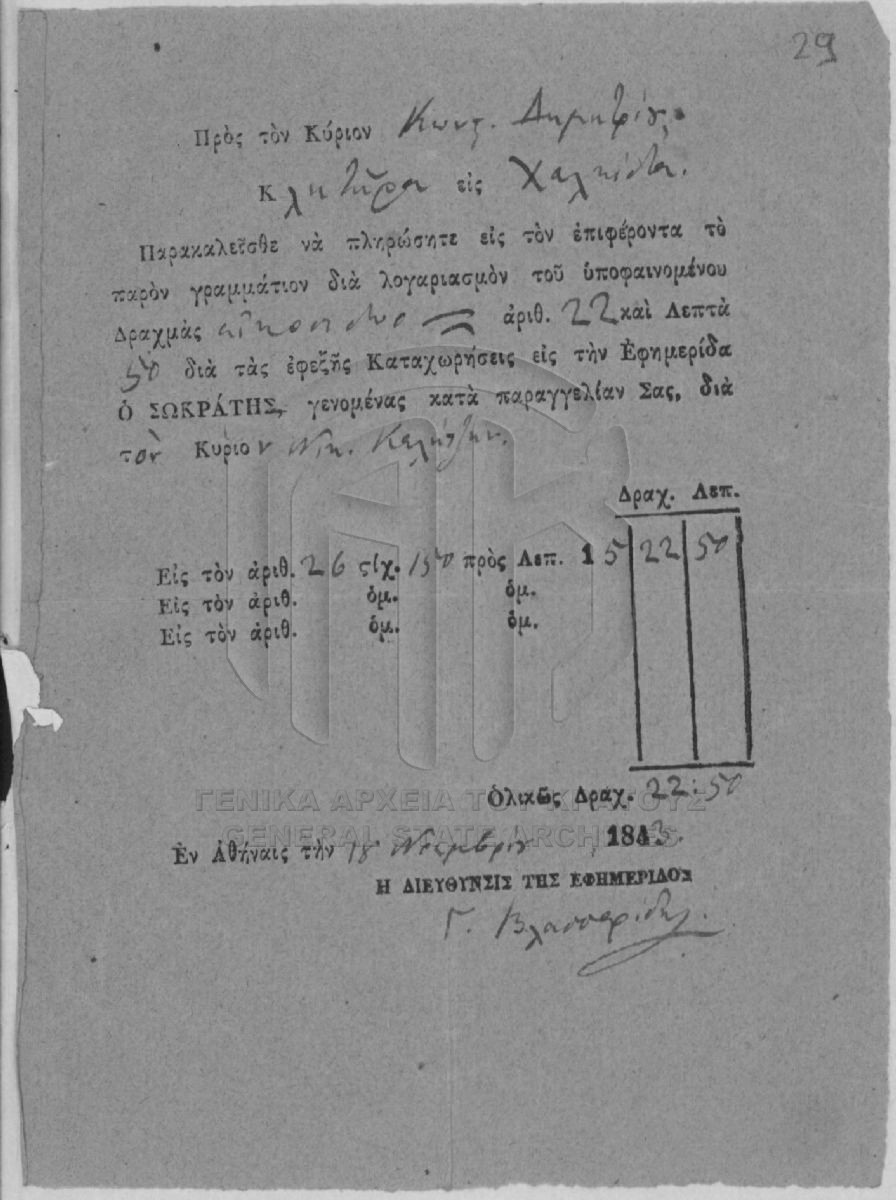 29
Πρὸς τὸν Κύριον Κωνς. Δημητρίου,
Κλητῆρα εἰς Χαλκίδα.
Παρακαλεῖσθε νὰ πληρώσητε εἰς τὸν ἐπιφέροντα τὸ
παρὸν γραμμάτιον διὰ λογαριασμὸν τοῦ ὑποφαινομένου
Δραχμὰς εἴκοσι δύο ἀριθ. 22 καὶ Λεπτὰ
50 διὰ τὰς ἐφεξῆς Καταχωρήσεις εἰς τὴν Ἐφημερίδα
Ὁ ΣΩΚΡΑΤΗΣ, γενομένας κατὰ παραγγελίαν Σας, διὰ
τὸν Κύριον Νικ.
Δραχ. Λεπ.
Εἰς τὸν ἀριθ. 26 ςίχ. 150 πρὸς Λεπ. 15 22 50
Εἰς τὸν ἀριθ. ὁμ. ὁμ.
Εἰς τὸν ἀριθ. ὁμ. ὁμ.
Ὁλικῶς Δραχ. 22:50
ΓΕΝΙΚΑ ΑΡΧΕΙΑ ΤΟΥ ΚΡΑΤΟΥΣ
GENERAL STATE ARCHIVES
Ἐν Ἀθήναις τὴν 18 Νοεμβρίου 1843.
Η ΔΙΕΥΘΥΝΣΙΣ ΤΗΣ ΕΦΗΜΕΡΙΔΟΣ
Γ. Βλασσαρίδης.